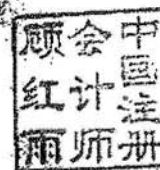 中国注册
会计师
顾红雨